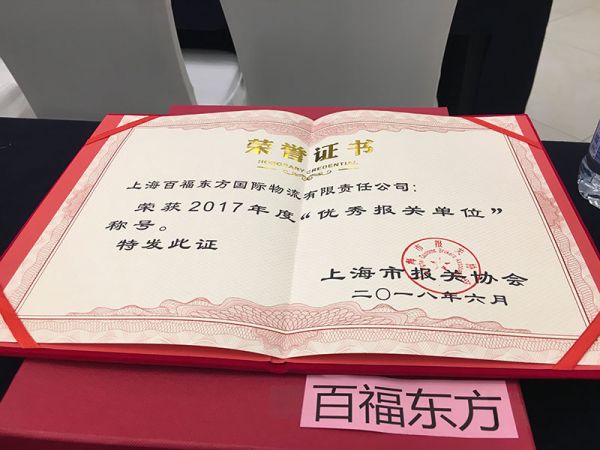 荣誉证书
HONORARY CREDENTIAL
上海百福东方国际物流有限责任公司：
荣获2017年度“优秀报关单位”
称号。
特发此证
上海市报关协会
二〇一八年六月
百福东方